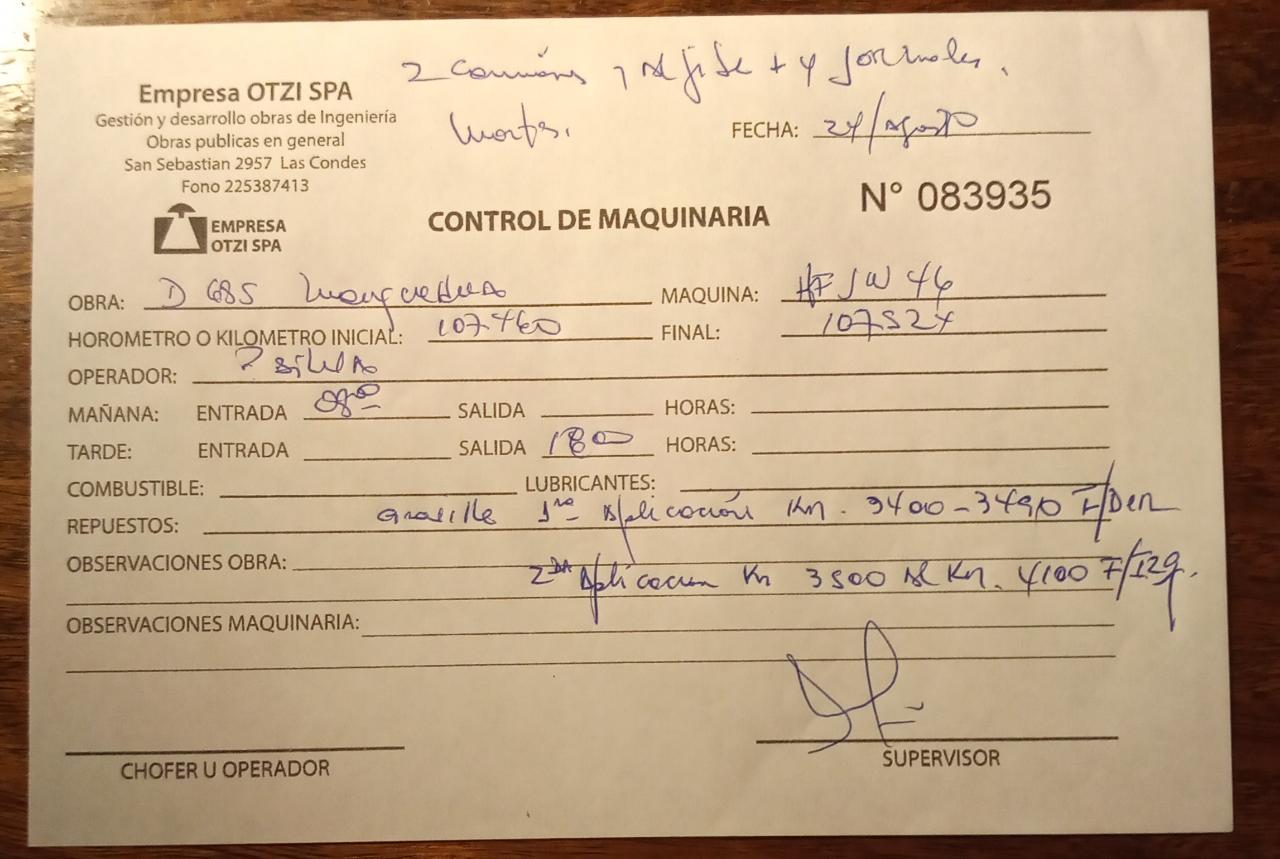 2 Camiones 1 + 4 Jornales.
Empresa OTZI SPA
Gestión y desarrollo obras de Ingeniería
Obras publicas en general
San Sebastian 2957 Las Condes
Fono 225387413
Martes.
FECHA: 24/Agosto
N° 083935
EMPRESA
OTZI SPA
CONTROL DE MAQUINARIA
OBRA: D 685
MAQUINA: HFJW 44
HOROMETRO O KILOMETRO INICIAL: 107460
FINAL: 107524
OPERADOR: Silva
MAÑANA: ENTRADA 0800 SALIDA HORAS:
TARDE: ENTRADA SALIDA 1800 HORAS:
COMBUSTIBLE: LUBRICANTES:
REPUESTOS: Gravilla 1ra Aplicación Km. 3400-3490 F/Der
OBSERVACIONES OBRA:
2da Aplicacion Km 3500 Al Km. 4100 F/Izq.
OBSERVACIONES MAQUINARIA:
CHOFER U OPERADOR
SUPERVISOR